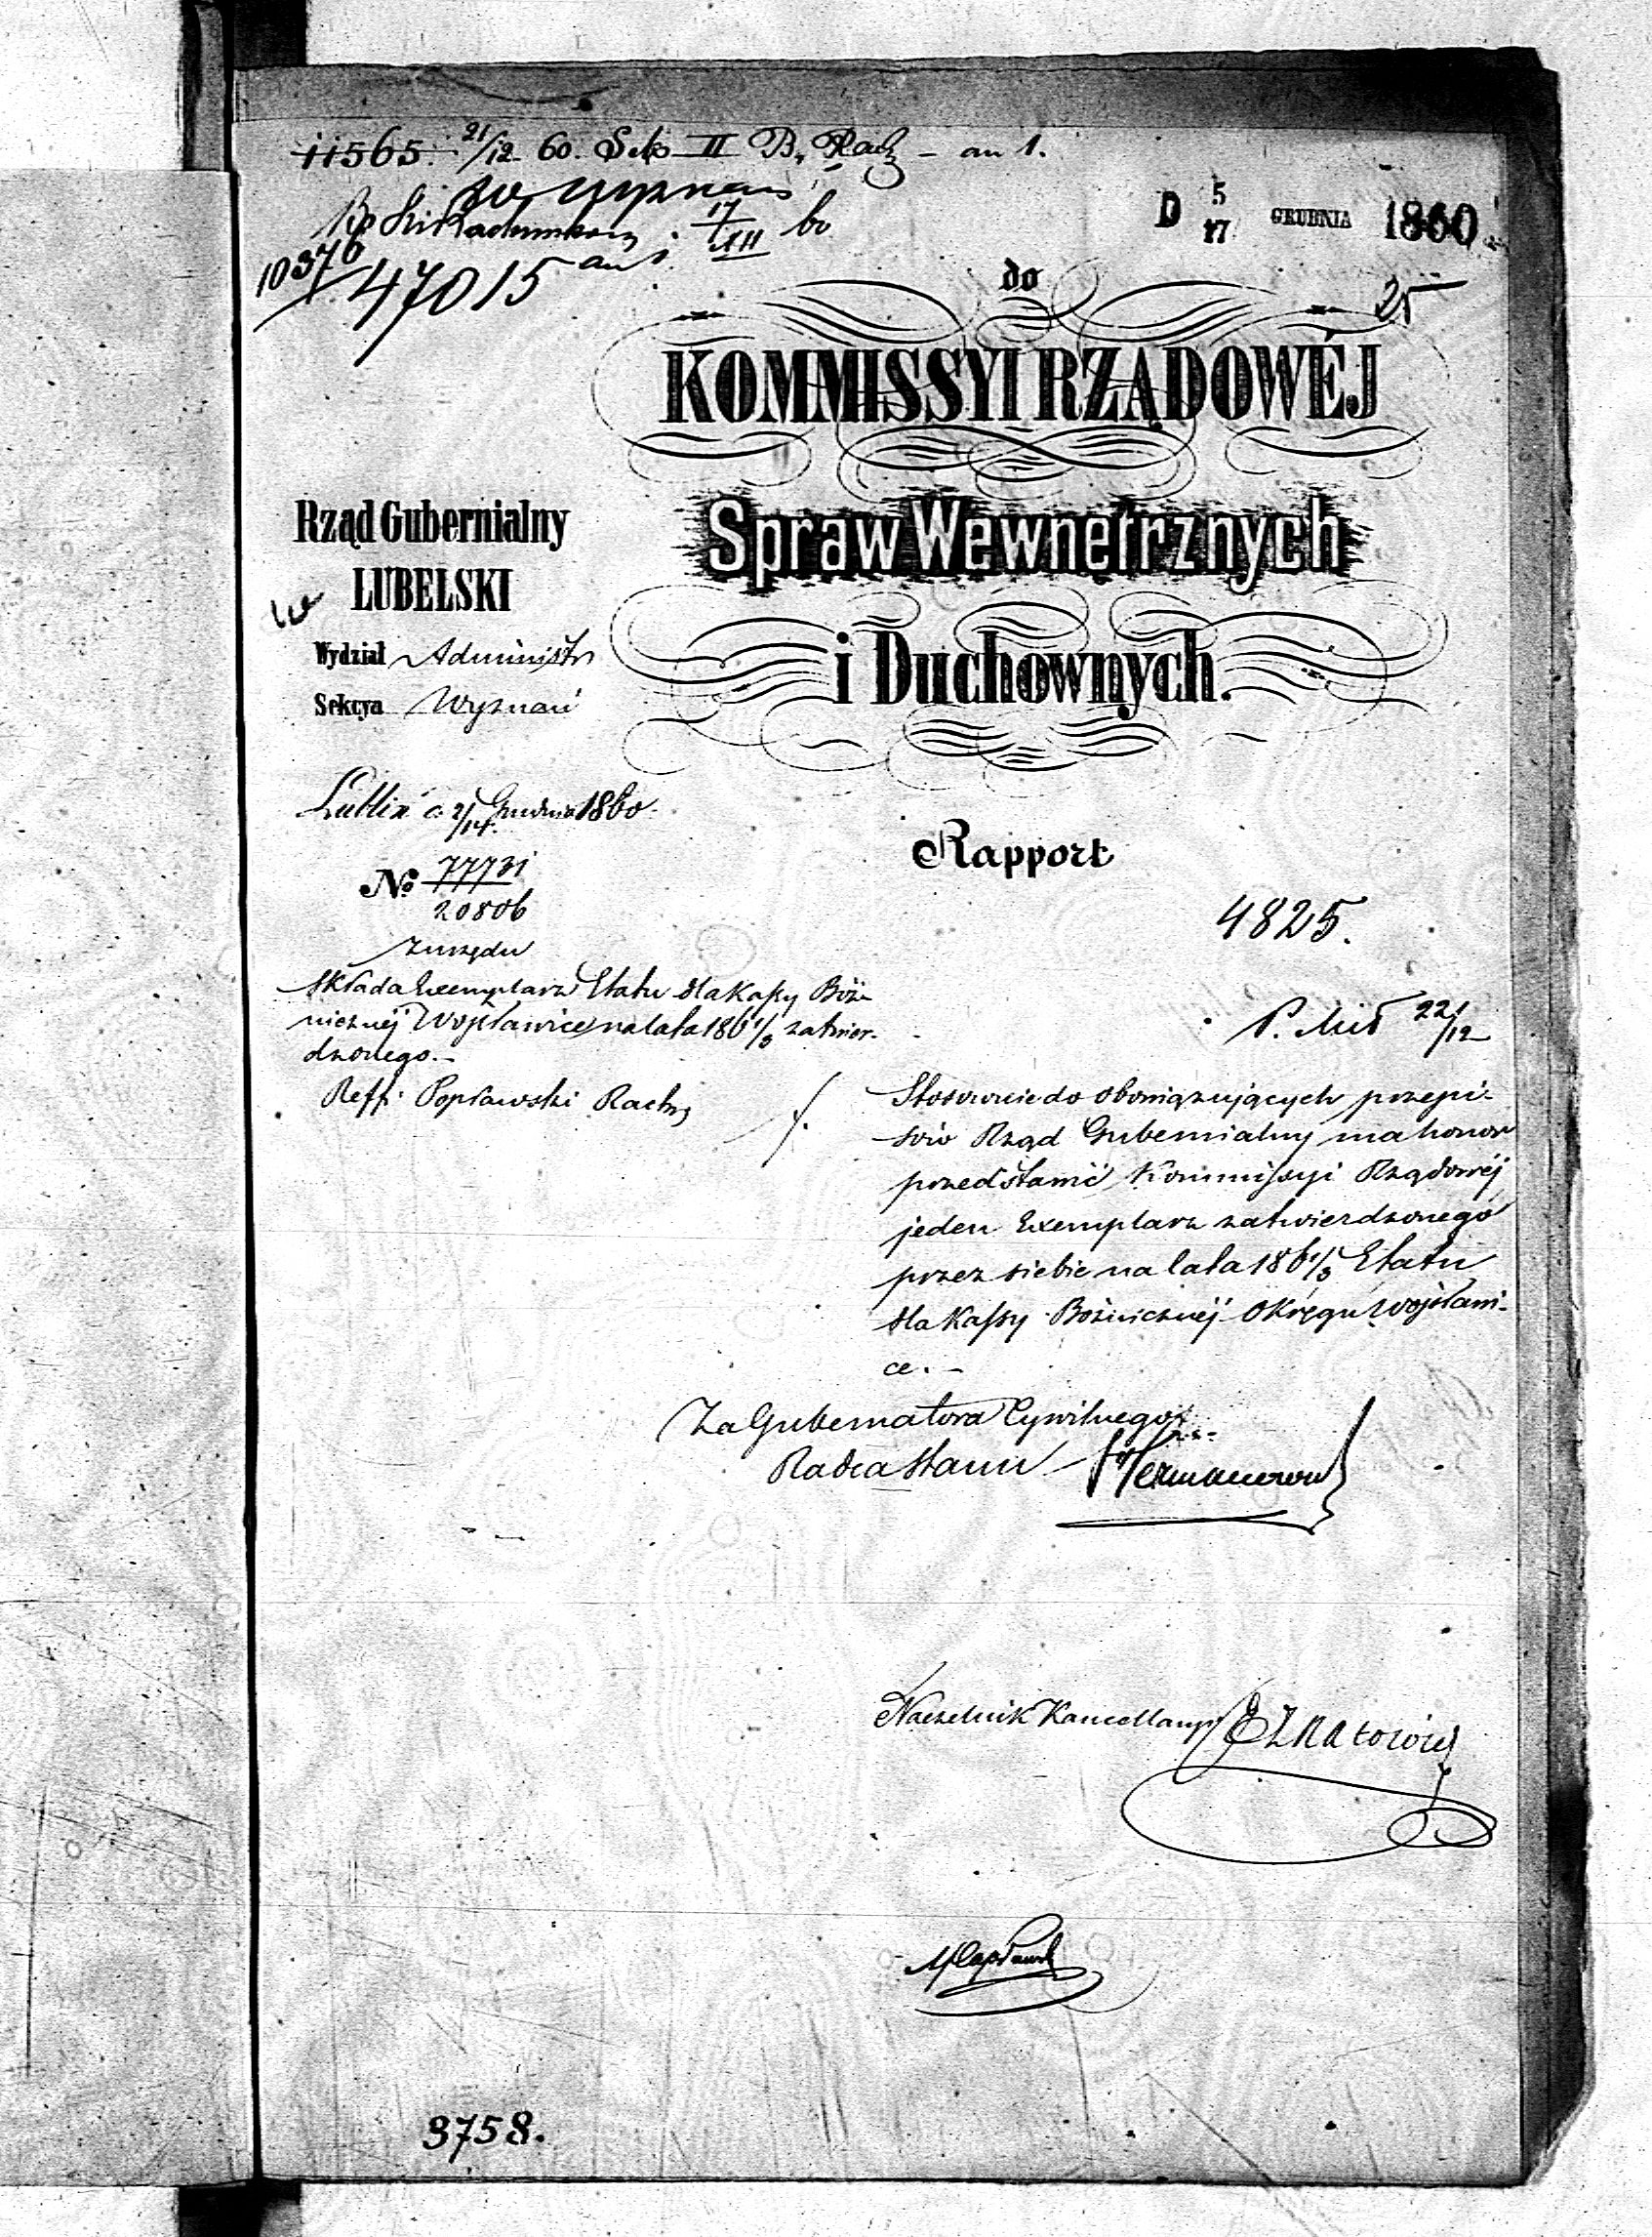 11565. 21/12 60. Sek II B. Rach - an 1.
17/XII 60
10376
47015 an 1.
D 5/17 GRUDNIA 1860.
25
do
KOMMISSYI RZĄDOWÉJ
Spraw Wewnętrznych
i Duchownych.
Rząd Gubernialny
LUBELSKI
Wydział Administr
Sekcya Wyznań
Lublin d. 2/14 Grudnia 1860.
No 77731/20806
z urzędu
Składa Exemplarz Etatu dla Kassy Boż-
nicznéj Wojsławice na lata 1861/3 zatwier-
dzonego.-
Reff: Popławski Rach
Rapport
4825.
22/12
Stosownie do obowiązujących przepi-
sów Rząd Gubernialny ma honor
przedstawić Kommissyi Rządowéj
jeden Exemplarz zatwierdzonego
przez siebie na lata 1861/3 Etatu
dla Kassy Bożnicznéj Okręgu Wojsławi-
ce.-
Za Gubernatora Cywilnego
Radca Stanu
Naczelnik Kancellaryi
3758.